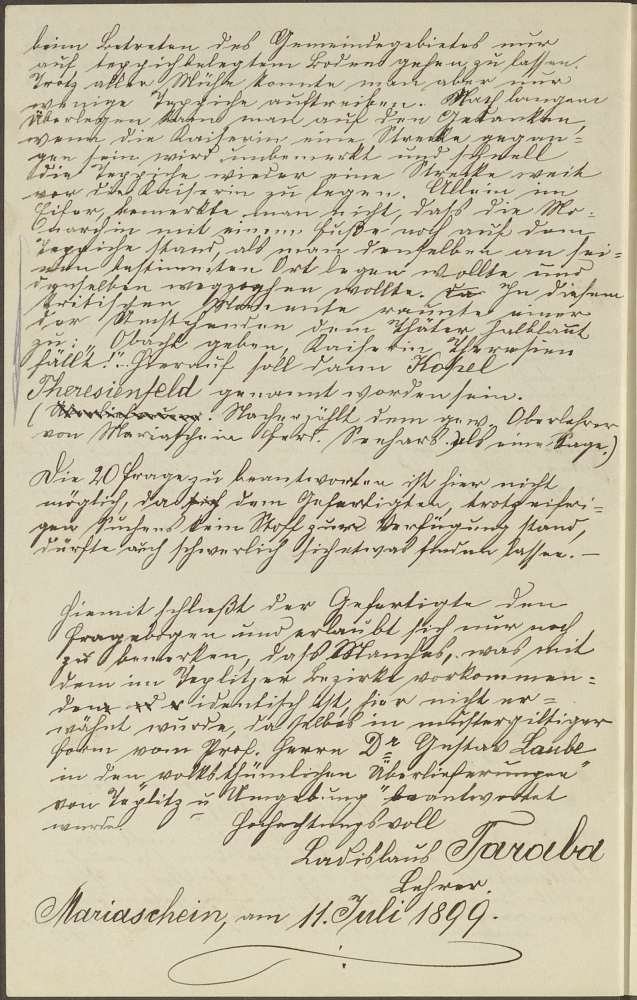 beim Betreten des Gemeindegebietes nur
auf teppichbelegtem Boden gehen zu lassen.
Trotz aller Mühe konnte man aber nur
wenige Teppiche auftreiben. Nach langem
Überlegen kam man auf den Gedanken,
wenn die Kaiserin eine Strecke gegan-
gen sein wird unbemerkt und schnell
die Teppiche wieder eine Strecke weit
vor die Kaiserin zu legen. Allein im
Eifer bemerkte man nicht, dass die Mo-
narchin mit einem Fuße noch auf dem
Teppiche stand, als man denselben an sei-
nen bestimmten Ort legen wollte und
denselben wegziehen wollte. In diesem
kritischen Momente raunte einer
der Umstehenden dem Thäter halblaut
zu: "Obacht geben, Kaiserin Theresien
fällt!" Hierauf soll dann
Theresienfeld genannt worden sein.
( Nacherzählt dem gew. Oberlehrer
von Mariaschein Ferd. als eine Sage.)
Die 20 Frage zu beantworten ist hier nicht
möglich, da dem Gefertigten, trotz eifri-
gen Suchens kein Stoff zur Verfügung stand,
dürfte auch schwerlich sich etwas finden lassen. –
Hiemit schließt der Gefertigte den
Fragebogen und erlaubt sich nur noch
zu bemerken, dass Manches, was mit
dem im Teplitzer Bezirke vorkommen-
den identisch ist, hier nicht er-
wähnt wurde, da selbes in mustergiltiger
Form vom Prof. Herrn Dr Gustav Laube
in den volksthümlichen Überlieferungen
von Teplitz u Umgebung" beantwortet
wurde. Hochachtungsvoll
Ladislaus Taraba
Lehrer.
Mariaschein, am 11. Juli 1899.